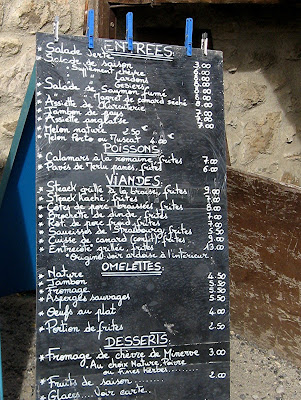 ENTREES
* Salade verte 3.00
* Salade de saison 6.00
* Supplément chèvre
" lardons
" Gésiers
* Salade de Saumon fumé
" " Magret de canard séché 8.00
* Assiette de Charcuterie
* Jambon de pays
* Assiette anglaise 7.00
* Melon nature 2.50 €
* Melon Porto ou Muscat 4.00
POISSONS
* Calamars à la romaine, frites 7.00
* Pavés de Merlu panés, frites 6.00
VIANDES
* Steack grillé à la braise, frites 9.00
* Steack haché, frites
* Côtes de porc braisées, frites
* Brochette de dinde, frites
* Roti de porc froid, frites
* Saucisse de Strasbourg, frites
* Cuisse de canard (confit), frites
* Entrecote grillée, frites 13.00
Origine: voir ardoise à l'intérieur
OMELETTES
* Nature 4.50
* Jambon 5.50
* Fromage 5.50
* Asperges sauvages 5.50
* Oeufs au plat 4.00
* Portion de frites 2.50
DESSERTS
* Fromage de chèvre de Minerve 3.00
Au choix Nature, Poivre
ou fines herbes
* Fruits de saison 2.00
* Glaces... Voir carte.